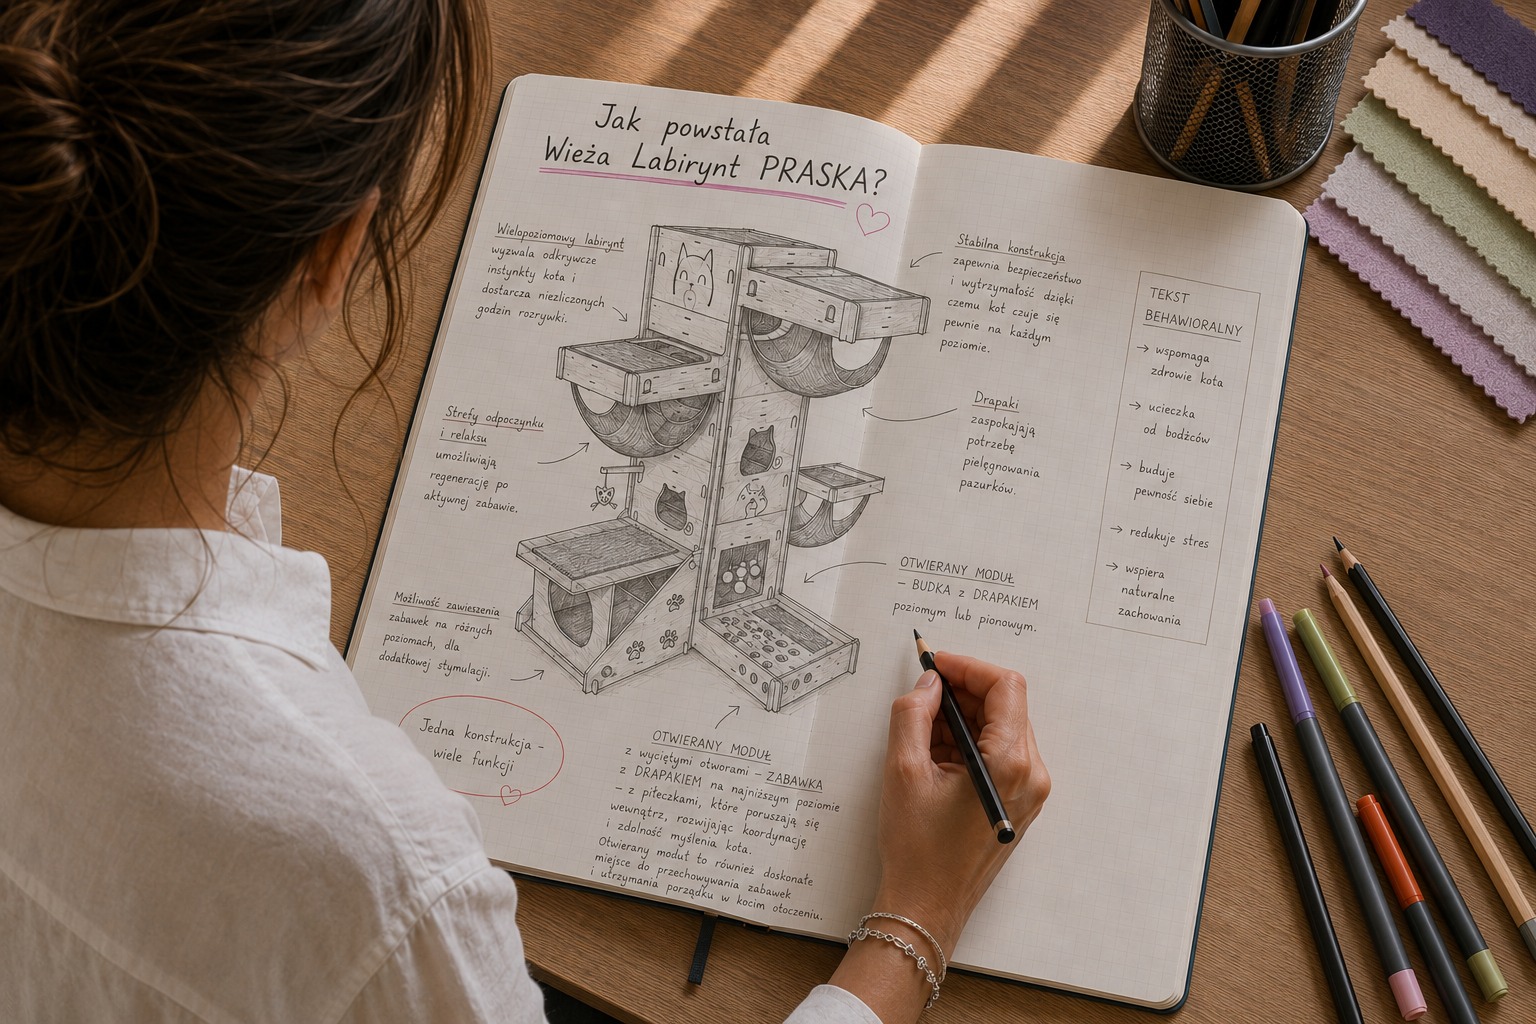 Jak powstała
Wieża Labirynt PRASKA?
Wielopoziomowy labirynt
wyzwala odkrywcze
instynkty kota i
dostarcza niezliczonych
godzin rozrywki.
Strefy odpoczynku
i relaksu
umożliwiają
regenerację po
aktywnej zabawie.
Możliwość zawieszenia
zabawek na różnych
poziomach, dla
dodatkowej stymulacji.
Jedna konstrukcja –
wiele funkcji
OTWIERANY MODUŁ
z wyciętymi otworami – ZABAWKA
z DRAPAKIEM na najniższym poziomie
– z piłeczkami, które poruszają się
wewnątrz, rozwijając koordynację
i zdolność myślenia kota.
Otwierany moduł to również doskonałe
miejsce do przechowywania zabawek
i utrzymania porządku w kocim otoczeniu.
Stabilna konstrukcja
zapewnia bezpieczeństwo
i wytrzymałość dzięki
czemu kot czuje się
pewnie na każdym
poziomie.
Drapaki
zaspokajają
potrzebę
pielęgnowania
pazurków.
OTWIERANY MODUŁ
– BUDKA z DRAPAKIEM
poziomym lub pionowym.
TEKST
BEHAWIORALNY
→ wspomaga
zdrowie kota
→ ucieczka
od bodźców
→ buduje
pewność siebie
→ redukuje stres
→ wspiera
naturalne
zachowania